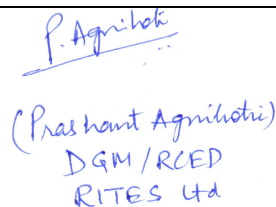 P. Agnihotri
(Prashant Agnihotri)
DGM/RCED
RITES Ltd